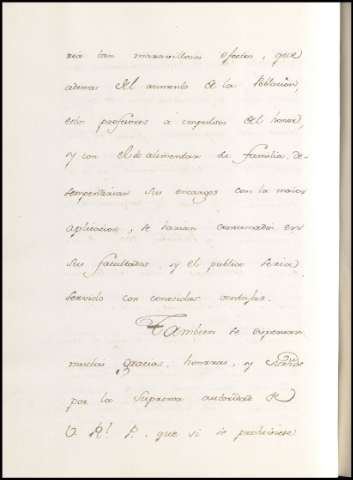 ria tan maravillosos efectos, que
ademas del aumento de la Poblacion,
estos profesores a impulsos del honor,
y con el de alimentar su familia, de-
sempeñarian sus encargos con la maior
aplicacion, se harian consumados en
sus facultades, y el publico seria
servido con conocidas ventajas.
Tambien se esperaran
muchas gracias, honores, y
por la Suprema autoridad de
V. Rl. P. que si se prohiviese